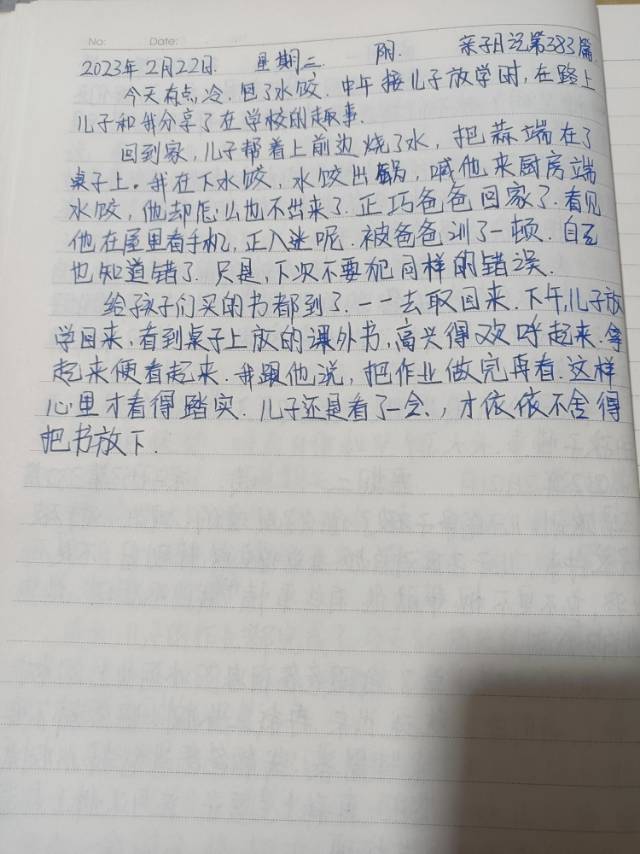 No: Date:
2023年2月22日. 星期三 阴. 亲子日记第383篇
今天有点冷,包了水饺. 中午接儿子放学时,在路上
儿子和我分享了在学校的趣事.
回到家,儿子帮着上前边烧了水,把蒜端在了
桌子上。我在下水饺,水饺出锅,喊他来厨房端
水饺,他却怎么也不出来了. 正巧爸爸回家了. 看见
他在屋里看手机,正入迷呢. 被爸爸训了一顿. 自己
也知道错了. 只是,下次不要犯同样的错误.
给孩子们买的书都到了. 一一去取回来. 下午,儿子放
学回来,看到桌子上放的课外书,高兴得欢呼起来. 拿
起来便看起来. 我跟他说,把作业做完再看. 这样
心里才看得踏实. 儿子还是看了一会.,才依依不舍得
把书放下.